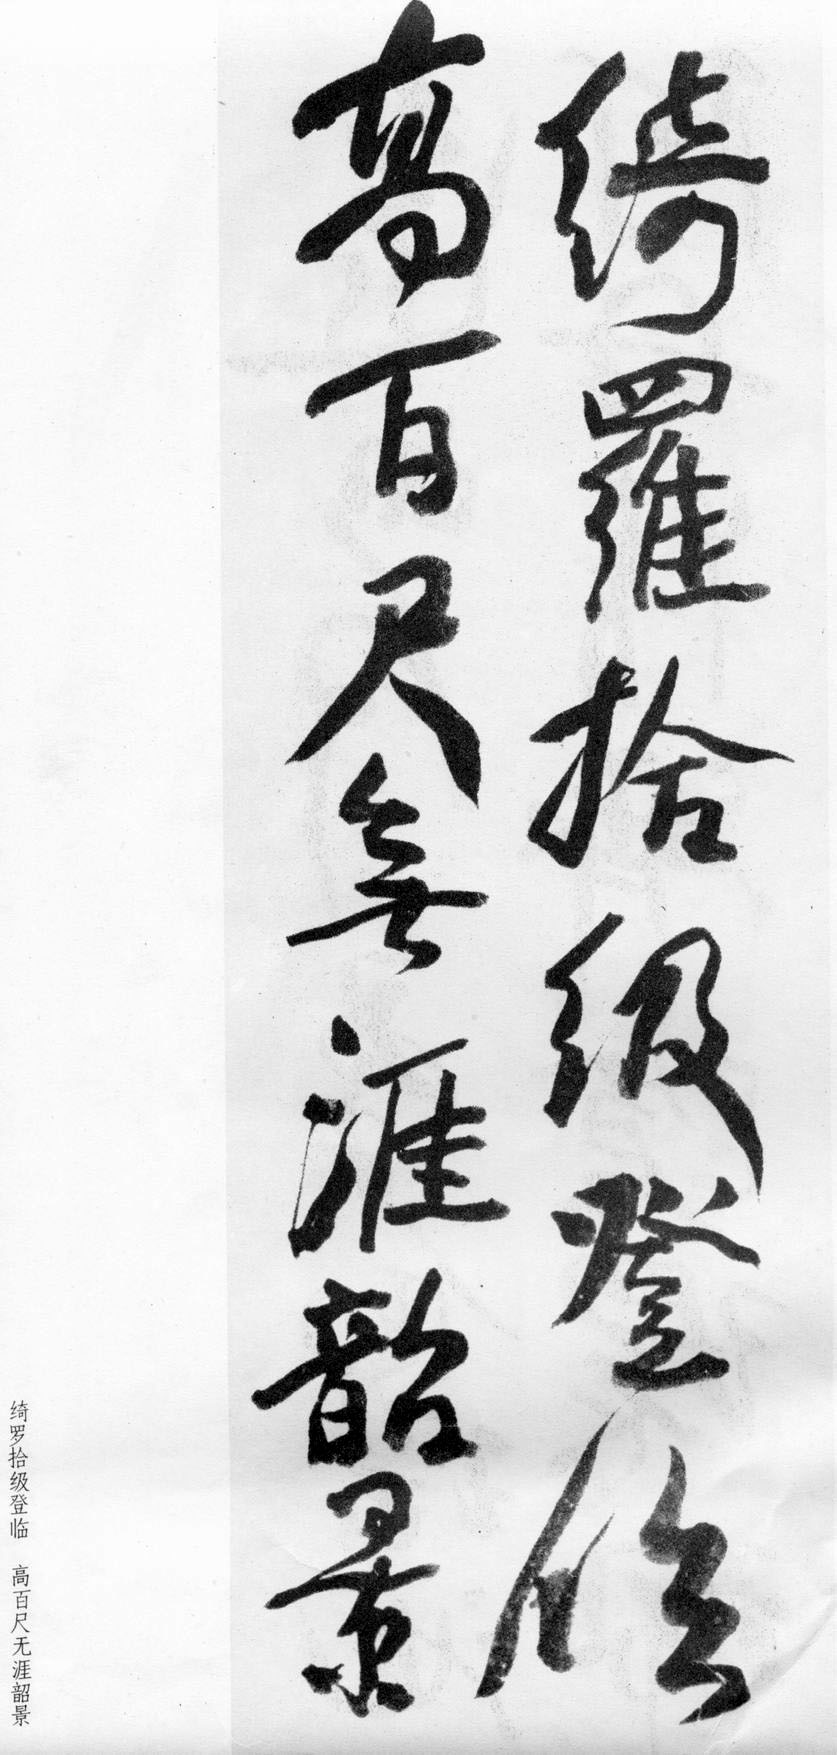 綺羅拾級登臨
高百尺無涯韶景
绮罗拾级登临 高百尺无涯韶景